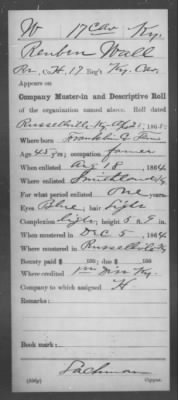 W 17 Cav. Ky.
Reuben Wall
Co. H, 17 Reg't Ky. Cav.
Appears on
Company Muster-in and Descriptive Roll
of the organization named above. Roll dated
Russellville Ky. Apl 25, 1865.
Where born Franklin Co. Tenn
Age 45 y'rs; occupation farmer
When enlisted Aug 18, 1864
Where enlisted Smithland Ky
For what period enlisted one years.
Eyes Blue; hair Light
Complexion light; height 5 ft. 9 in.
When mustered in Dec 5, 1864
Where mustered in Russellville Ky
Bounty paid $ 100; due $ 100
Where credited 1st Dis Ky.
Company to which assigned H
Remarks:
Book mark:
Lachman
Copyist.